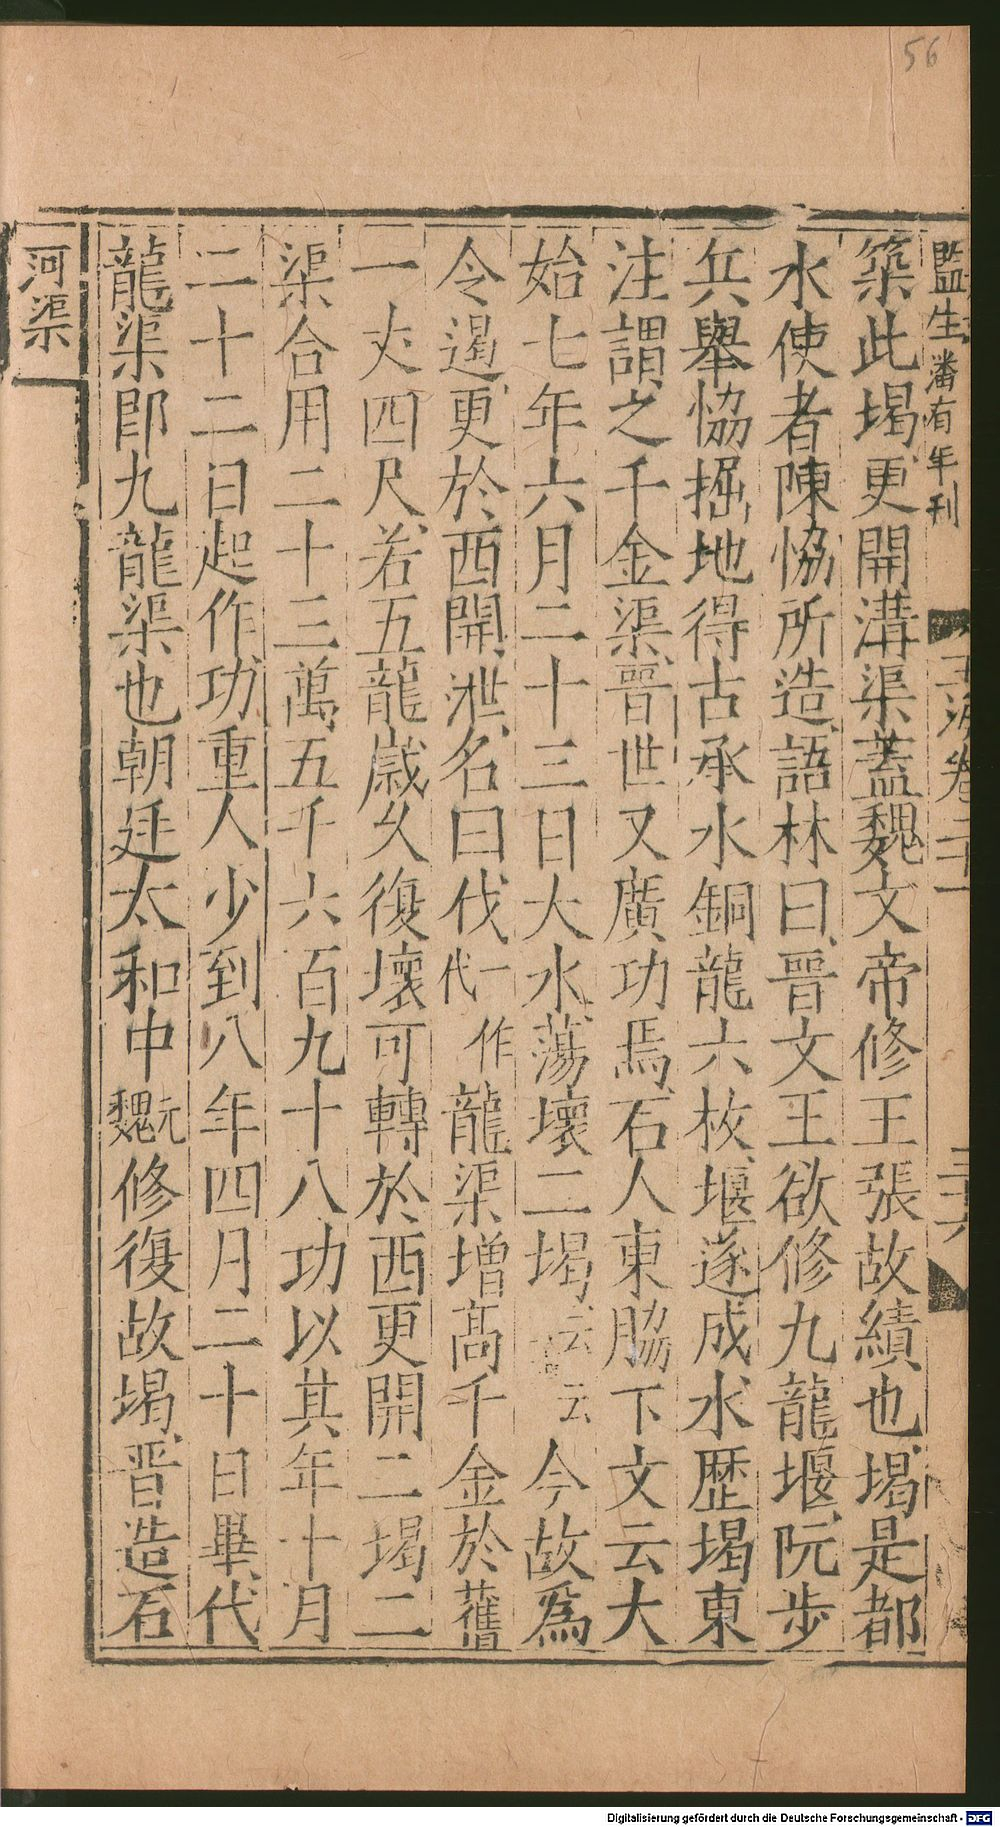 56
監生潘有年刊
玉海卷二十一
三十六
築此堨更開溝渠蓋魏文帝修王張故績也堨是都
水使者陳恊所造語林曰晉文王欲修九龍堰阮步
兵舉恊掘地得古承水銅龍六枚堰遂成水歷堨東
注謂之千金渠晉世又廣功焉石人東脇下文云大
始七年六月二十三日大水蕩壞二堨云云今故爲
今遏更於西開泄名曰伐一作代龍渠增高千金於舊
一丈四尺若五龍歲久復壞可轉於西更開二堨二
渠合用二十三萬五千六百九十八功以其年十月
二十二日起作功重人少到八年四月二十日畢代
龍渠即九龍渠也朝廷太和中元魏修復故堨晉造石
河渠
Digitalisierung gefördert durch die Deutsche Forschungsgemeinschaft - DFG